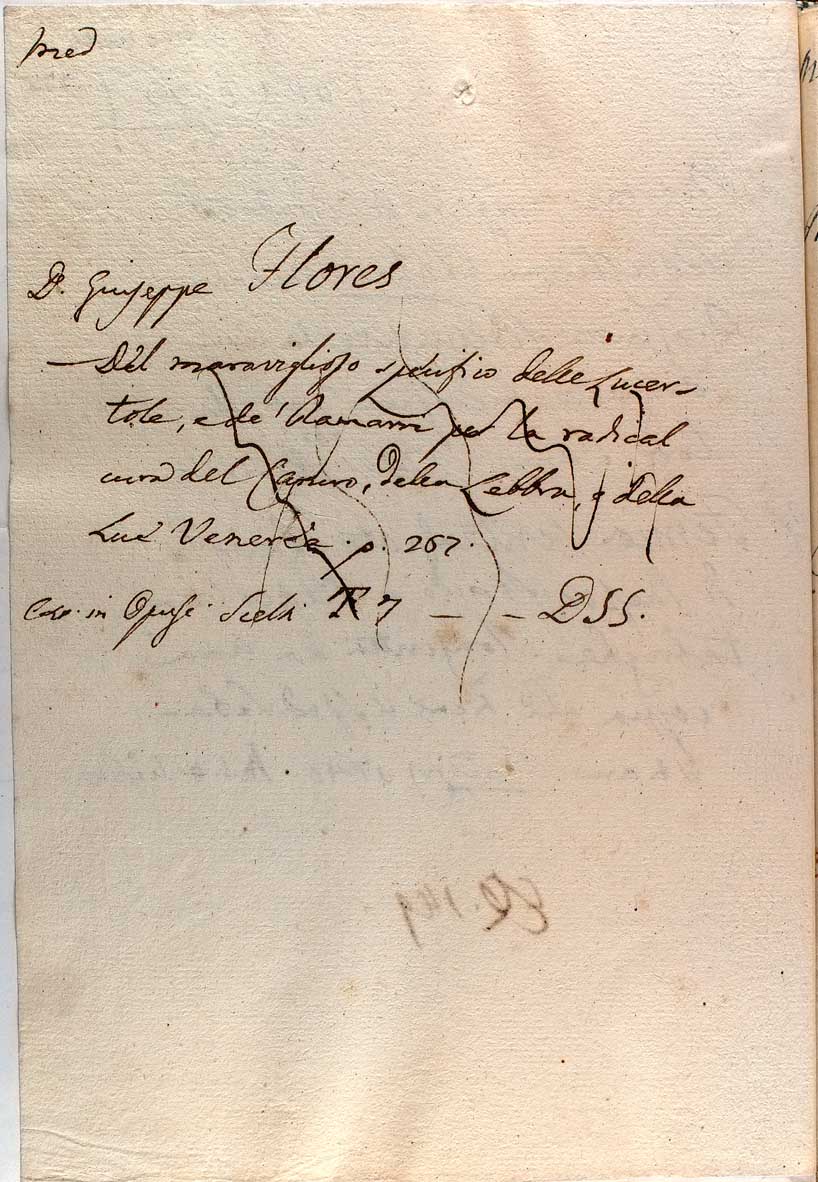 med
D. Giuseppe Flores
— Del maraviglioso specifico delle Lucer-
tole, e de' Ramarri per la radical
cura del Cancro, della Lebbra, e della
Lue Venerea. p. 267.
in Opusc. Scelti T. 7 — — DSS.